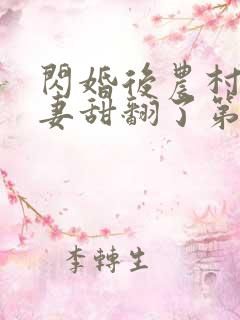 閃婚後農村
妻甜翻了第
李轉生